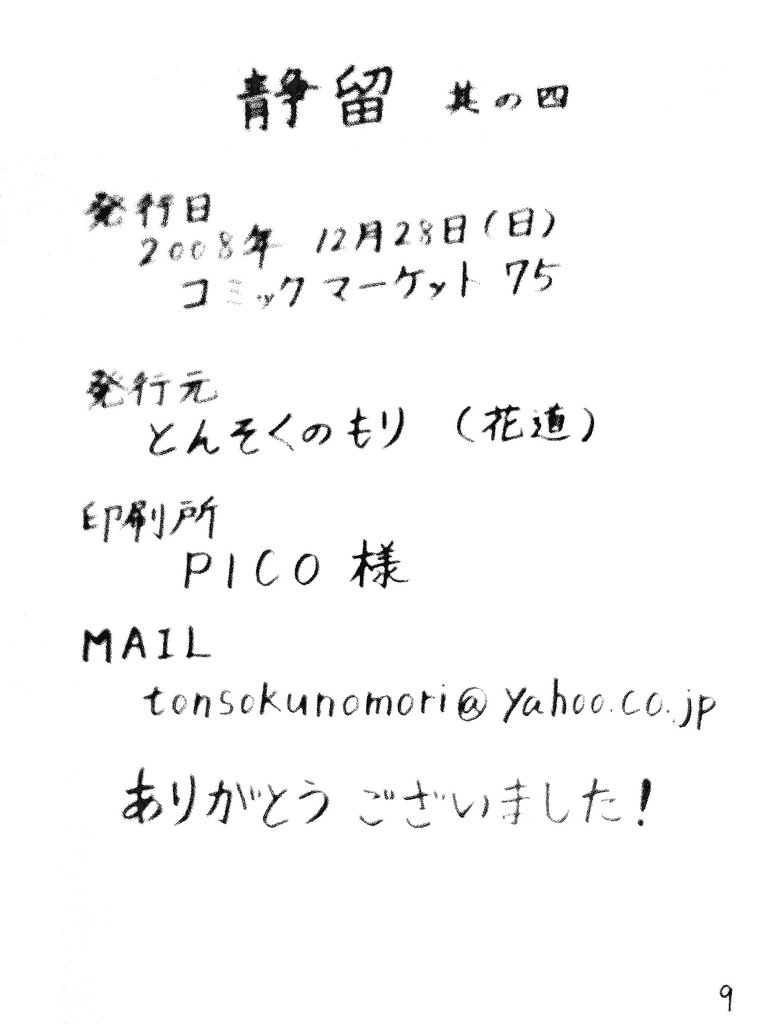 静留 其の四
発行日
2008年 12月28日(日)
コミックマーケット 75
発行元
とんそくのもり (花道)
印刷所
PICO 様
MAIL
tonsokunomori@yahoo.co.jp
ありがとうございました!
9